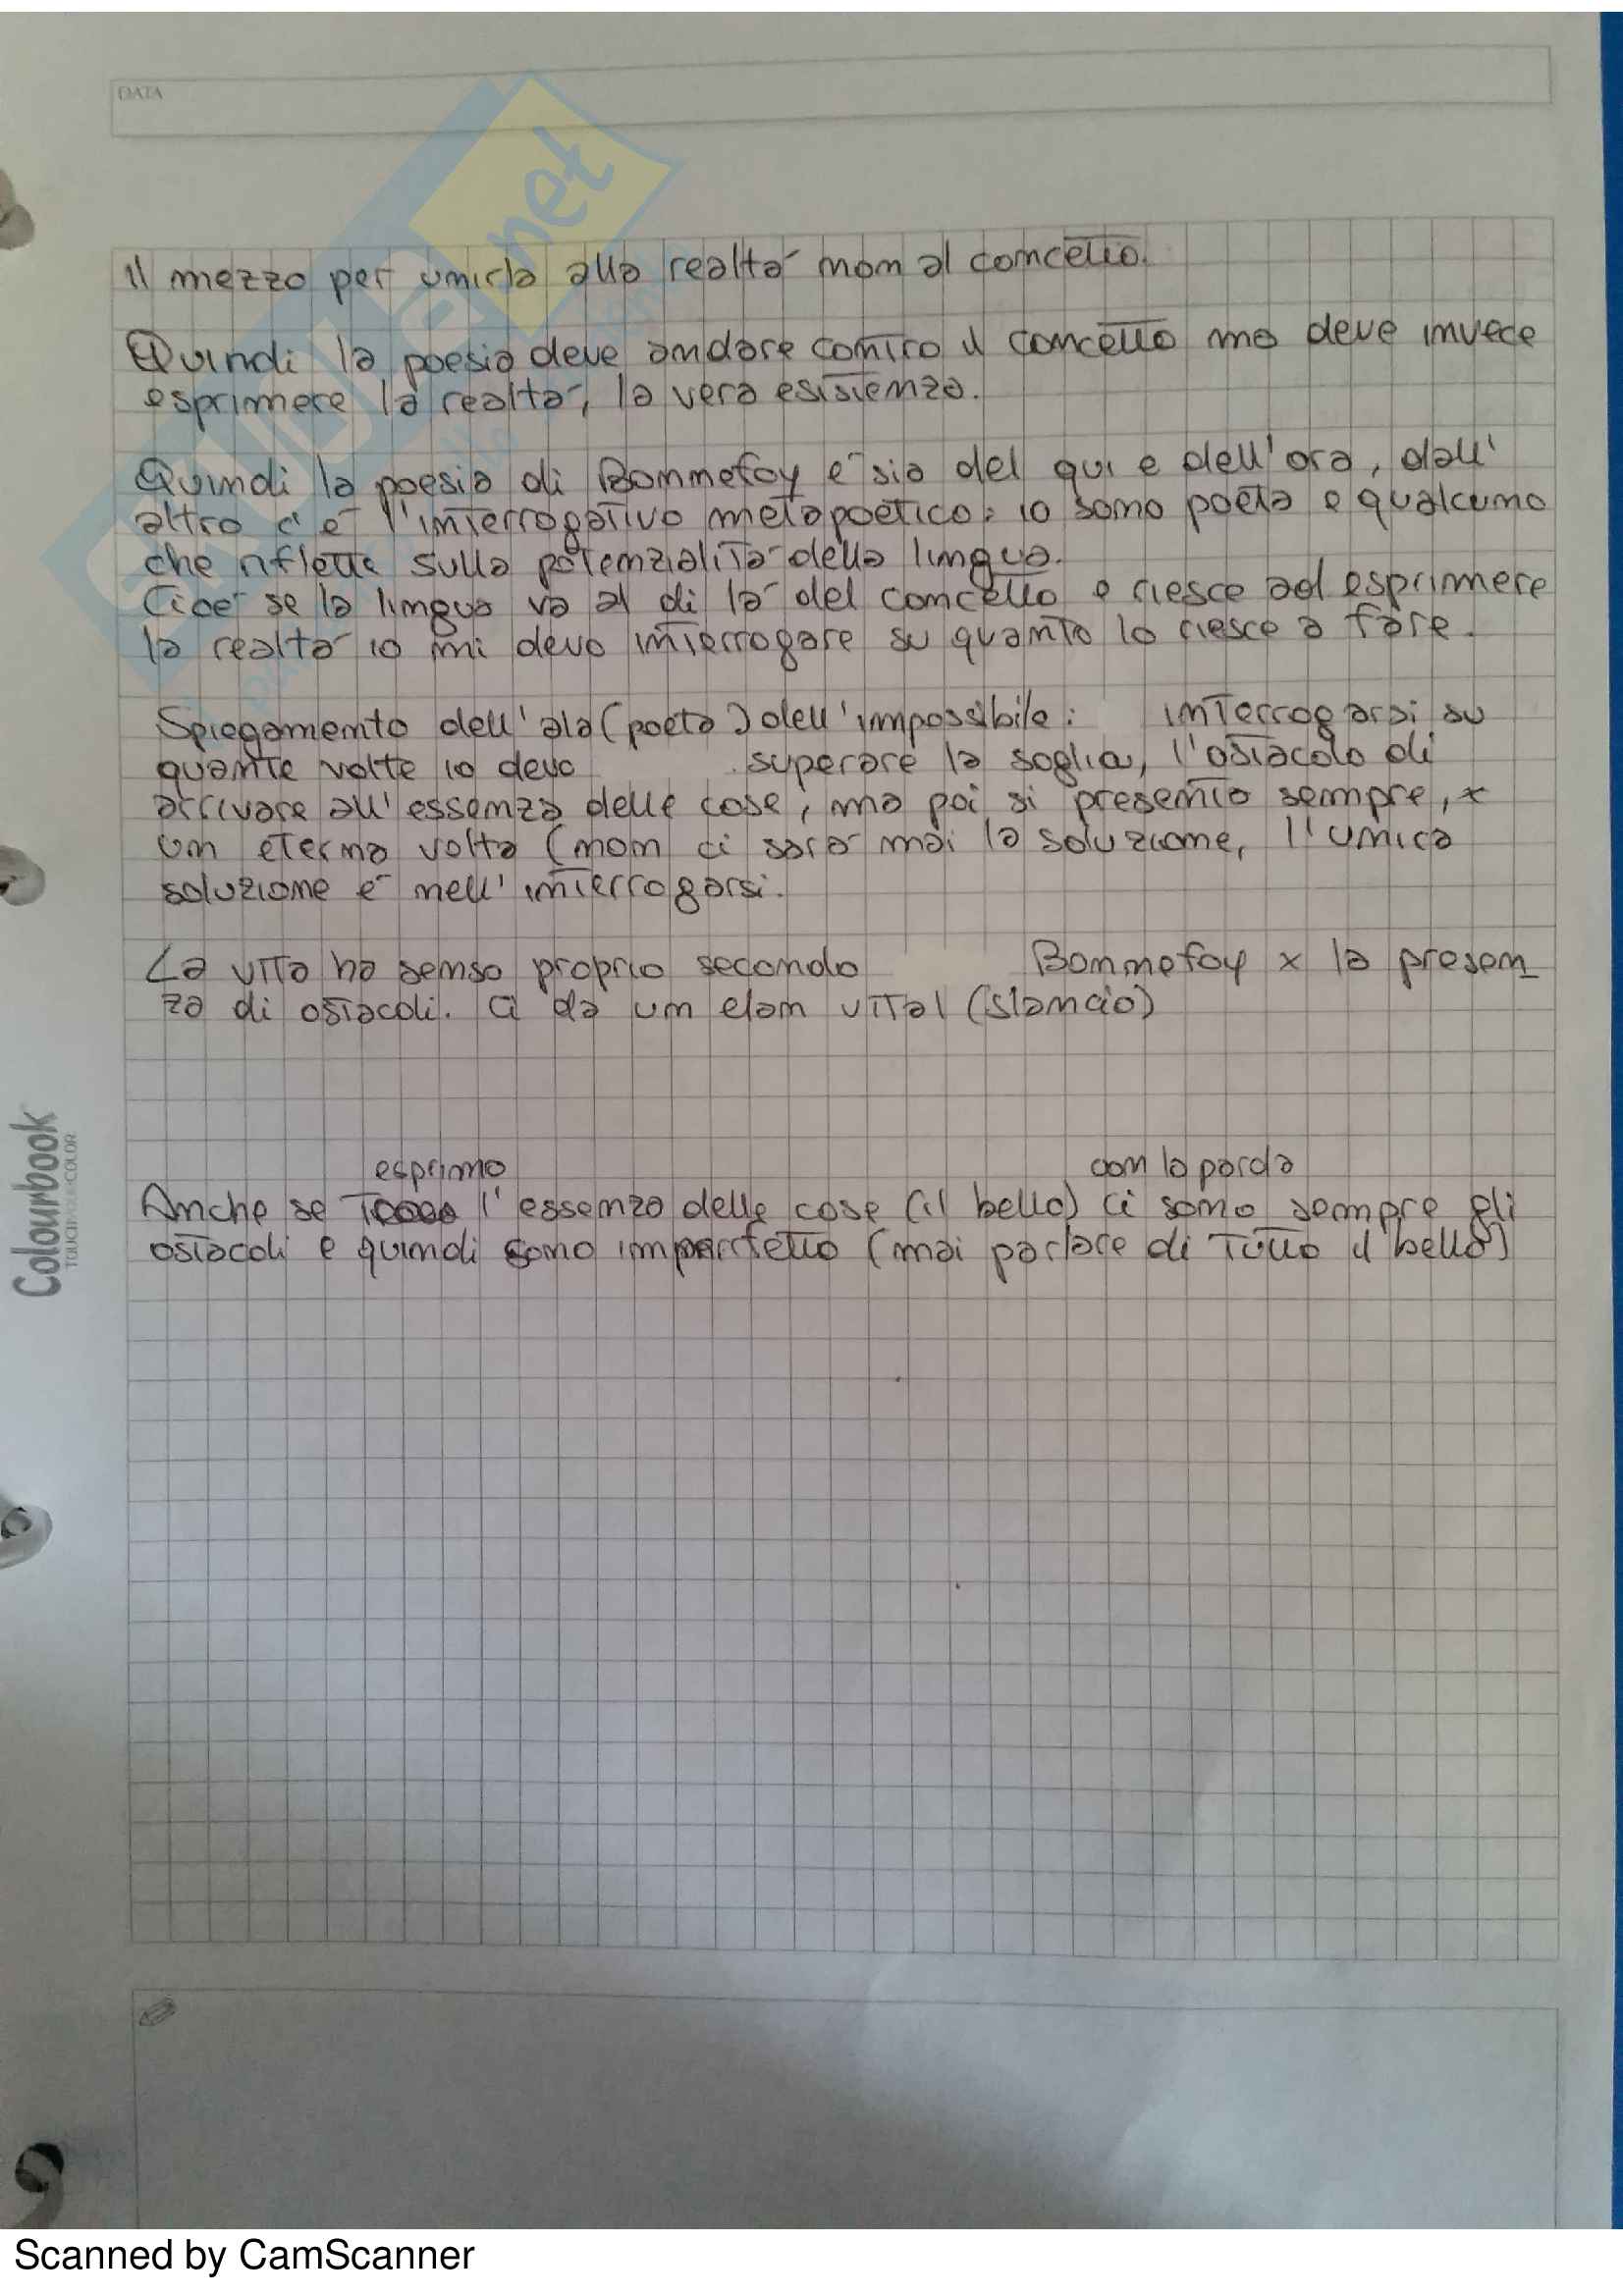 DATA
il mezzo per unirla alla realtà non al concetto.
Quindi la poesia deve andare contro il concetto ma deve invece
esprimere la realtà, la vera esistenza.
Quindi la poesia di Bonnefoy è sia del qui e dell'ora, dall'
altro c'è l'interrogativo metapoetico: io sono poeta e qualcuno
che riflette sulla potenzialità della lingua.
Cioè se la lingua va al di là del concetto e riesce ad esprimere
la realtà io mi devo interrogare su quanto lo riesce a fare.
Spiegamento dell'ala (poeta) dell'impossibile: interrogarsi su
quante volte io devo superare la soglia, l'ostacolo di
arrivare all'essenza delle cose, ma poi si presenta sempre, x
un eterna volta (non ci sarà mai la soluzione, l'unica
soluzione è nell'interrogarsi.
La vita ha senso proprio secondo Bonnefoy x la presen
za di ostacoli. Ci dà un elan vital (slancio)
esprimo con la parola
Anche se l'essenza delle cose (il bello) ci sono sempre gli
ostacoli e quindi sono imperfetto (mai parlare di tutto il bello)
Colourbook
TOUCH YOUR COLOR
Scanned by CamScanner